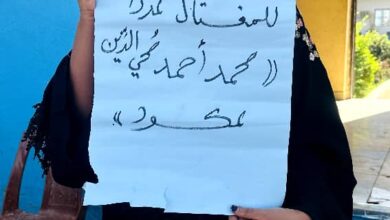 للمغتال غدرًا
«محمد أحمد محي الدّين
عكود»